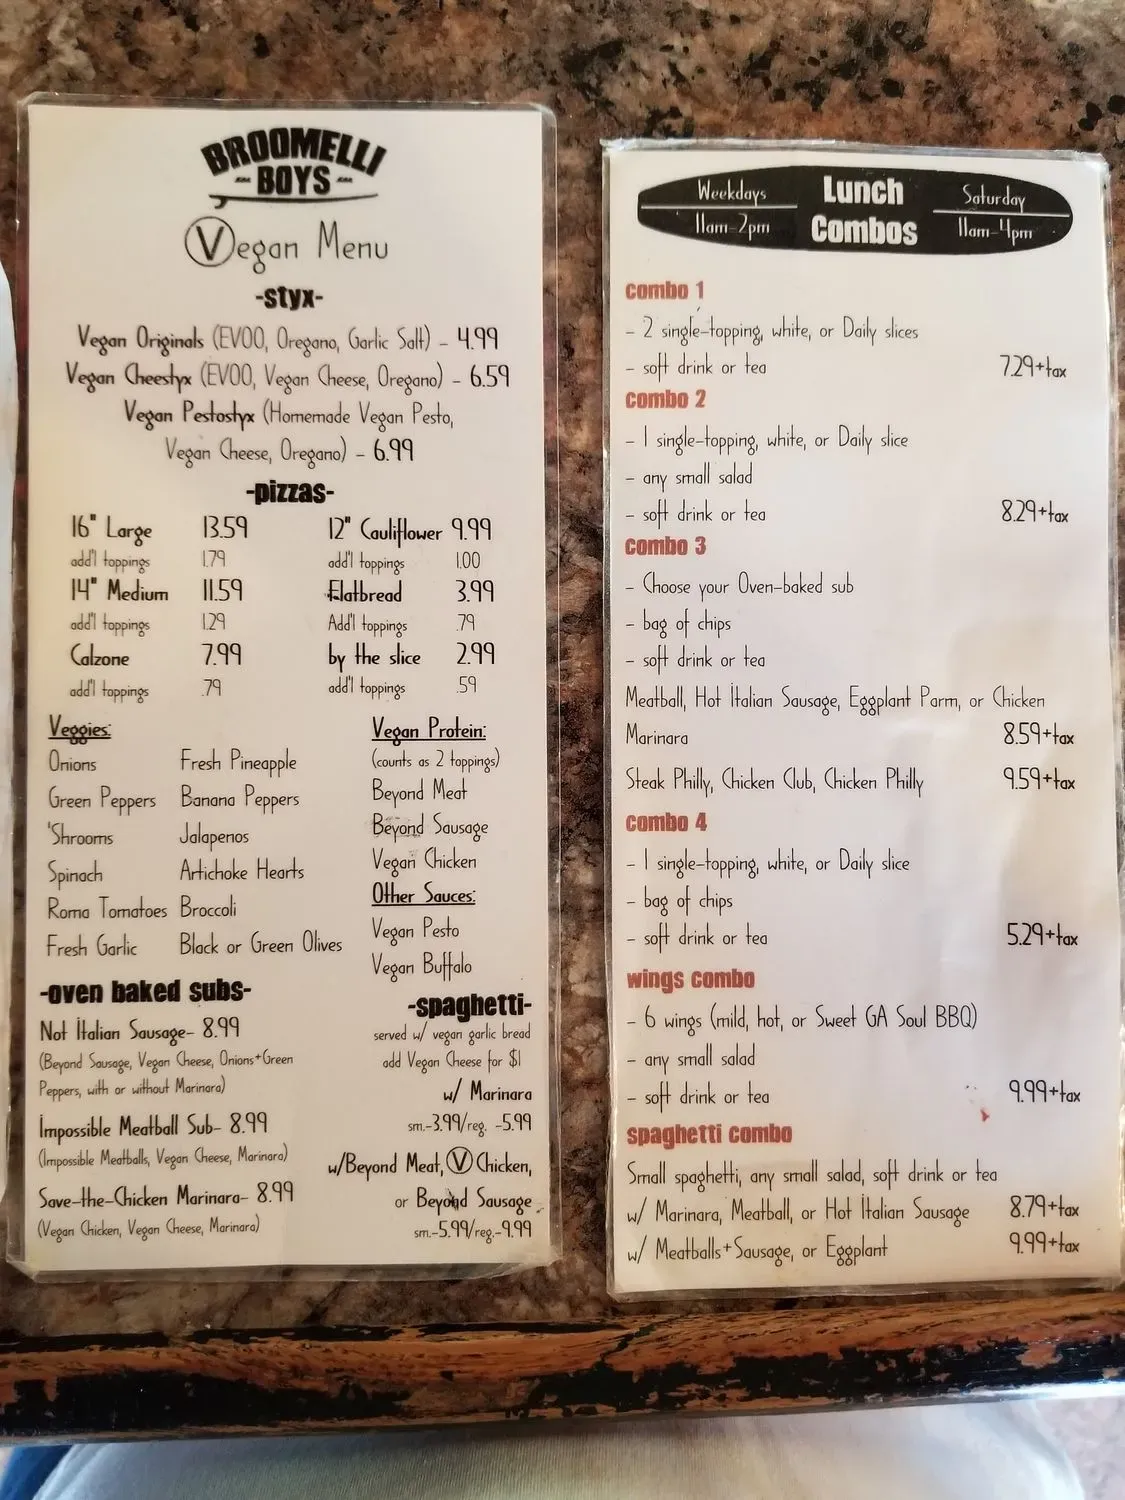 BROOMELLI
BOYS
Vegan Menu
-styx-
Vegan Originals (EVOO, Oregano, Garlic Salt) - 4.99
Vegan Cheestyx (EVOO, Vegan Cheese, Oregano) - 6.59
Vegan Pestostyx (Homemade Vegan Pesto,
Vegan Cheese, Oregano) - 6.99
-pizzas-
16" Large 13.59 12" Cauliflower 9.99
add'l toppings 1.79 add'l toppings 1.00
14" Medium 11.59 Flatbread 3.99
add'l toppings 1.29 Add'l toppings .79
Calzone 7.99 by the slice 2.99
add'l toppings .79 add'l toppings .59
Veggies:
Onions Fresh Pineapple
Green Peppers Banana Peppers
'Shrooms Jalapenos
Spinach Artichoke Hearts
Roma Tomatoes Broccoli
Fresh Garlic Black or Green Olives
Vegan Protein:
(counts as 2 toppings)
Beyond Meat
Beyond Sausage
Vegan Chicken
Other Sauces:
Vegan Pesto
Vegan Buffalo
-oven baked subs-
Not Italian Sausage- 8.99
(Beyond Sausage, Vegan Cheese, Onions+Green
Peppers, with or without Marinara)
Impossible Meatball Sub- 8.99
(Impossible Meatballs, Vegan Cheese, Marinara)
Save-the-Chicken Marinara- 8.99
(Vegan Chicken, Vegan Cheese, Marinara)
-spaghetti-
served w/ vegan garlic bread
add Vegan Cheese for $1
w/ Marinara
sm.-3.99/reg. -5.99
w/Beyond Meat, V Chicken,
or Beyond Sausage
sm.-5.99/reg.-9.99
Weekdays
11am-2pm
Lunch
Combos
Saturday
11am-4pm
combo 1
- 2 single-topping, white, or Daily slices
- soft drink or tea 7.29+tax
combo 2
- 1 single-topping, white, or Daily slice
- any small salad
- soft drink or tea 8.29+tax
combo 3
- Choose your Oven-baked sub
- bag of chips
- soft drink or tea
Meatball, Hot Italian Sausage, Eggplant Parm, or Chicken
Marinara 8.59+tax
Steak Philly, Chicken Club, Chicken Philly 9.59+tax
combo 4
- 1 single-topping, white, or Daily slice
- bag of chips
- soft drink or tea 5.29+tax
wings combo
- 6 wings (mild, hot, or Sweet GA Soul BBQ)
- any small salad
- soft drink or tea 9.99+tax
spaghetti combo
Small spaghetti, any small salad, soft drink or tea
w/ Marinara, Meatball, or Hot Italian Sausage 8.79+tax
w/ Meatballs+Sausage, or Eggplant 9.99+tax